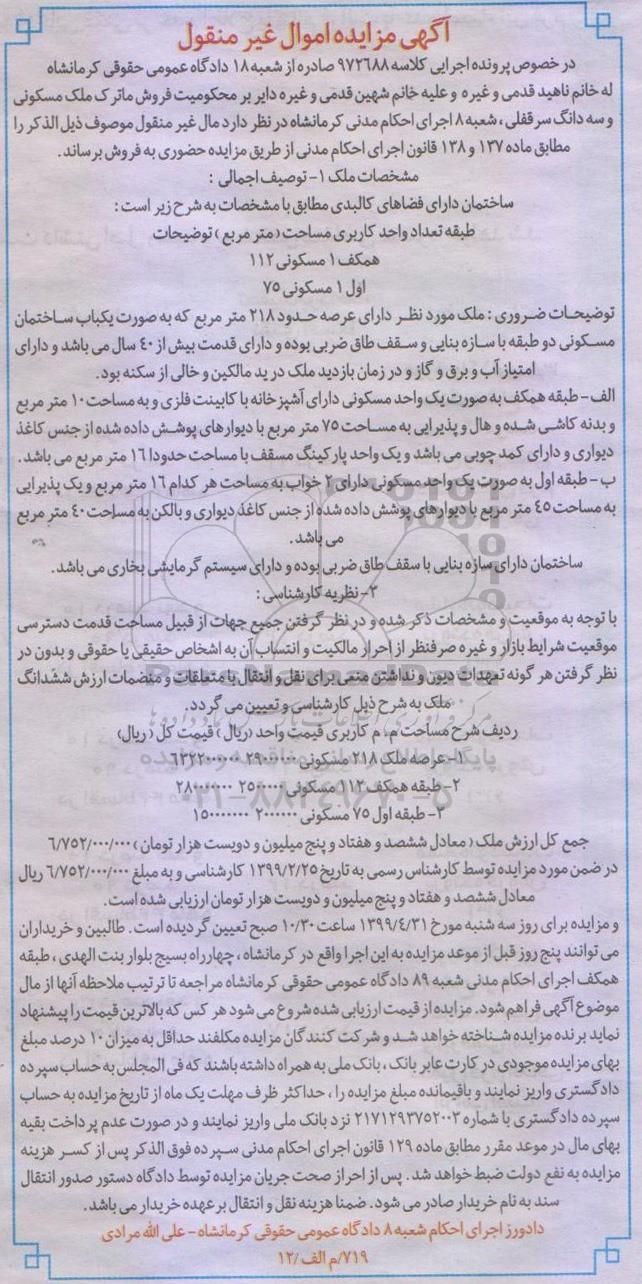 آگهی مزایده اموال غیر منقول
در خصوص پرونده اجرایی کلاسه ۹۷۲۶۸۸ صادره از شعبه ۱۸ دادگاه عمومی حقوقی کرمانشاه
له خانم ناهید قدمی و غیره و علیه خانم شهین قدمی و غیره دایر بر محکومیت فروش ماترک ملک مسکونی
و سه دانگ سرقفلی ، شعبه ۸ اجرای احکام مدنی کرمانشاه در نظر دارد مال غیر منقول موصوف ذیل الذکر را
مطابق ماده ۱۳۷ و ۱۳۸ قانون اجرای احکام مدنی از طریق مزایده حضوری به فروش برساند.
مشخصات ملک ۱- توصیف اجمالی :
ساختمان دارای فضاهای کالبدی مطابق با مشخصات به شرح زیر است :
طبقه تعداد واحد کاربری مساحت (متر مربع) توضیحات
همکف ۱ مسکونی ۱۱۲
اول ۱ مسکونی ۷۵
توضیحات ضروری : ملک مورد نظر دارای عرصه حدود ۲۱۸ متر مربع که به صورت یکباب ساختمان
مسکونی دو طبقه با سازه بنایی و سقف طاق ضربی بوده و دارای قدمت بیش از ۴۰ سال می باشد و دارای
امتیاز آب و برق و گاز و در زمان بازدید ملک در ید مالکین و خالی از سکنه بود.
الف- طبقه همکف به صورت یک واحد مسکونی دارای آشپزخانه با کابینت فلزی و به مساحت ۱۰ متر مربع
و بدنه کاشی شده و هال و پذیرایی به مساحت ۷۵ متر مربع با دیوارهای پوشش داده شده از جنس کاغذ
دیواری و دارای کمد چوبی می باشد و یک واحد پارکینگ مسقف با مساحت حدودا ۱۶ متر مربع می باشد .
ب- طبقه اول به صورت یک واحد مسکونی دارای ۲ خواب به مساحت هر کدام ۱۶ متر مربع و یک پذیرایی
به مساحت ۴۵ متر مربع با دیوارهای پوشش داده شده از جنس کاغذ دیواری و بالکن به مساحت ۴۰ متر مربع
می باشد .
ساختمان دارای سازه بنایی با سقف طاق ضربی بوده و دارای سیستم گرمایشی بخاری می باشد.
۲- نظریه کارشناسی :
با توجه به موقعیت و مشخصات ذکر شده و در نظر گرفتن جمیع جهات از قبیل مساحت قدمت دسترسی
موقعیت شرایط بازار و غیره صرفنظر از احراز مالکیت و انتساب آن به اشخاص حقیقی یا حقوقی و بدون در
نظر گرفتن هر گونه تعهدات دیون و نداشتن منعی برای نقل و انتقال با متعلقات و منضمات ارزش ششدانگ
ملک به شرح ذیل کارشناسی و تعیین می گردد.
ردیف شرح مساحت م. م کاربری قیمت واحد (ریال) قیمت کل (ریال)
۱- عرصه ملک ۲۱۸ مسکونی ۲۹۰۰۰۰۰۰ ۶۳۲۲۰۰۰۰۰۰
۲- طبقه همکف ۱۱۲ مسکونی ۲۵۰۰۰۰۰ ۲۸۰۰۰۰۰۰۰
۳- طبقه اول ۷۵ مسکونی ۲۰۰۰۰۰۰ ۱۵۰۰۰۰۰۰۰
جمع کل ارزش ملک (معادل ششصد و هفتاد و پنج میلیون و دویست هزار تومان) ۶/۷۵۲/۰۰۰/۰۰۰
در ضمن مورد مزایده توسط کارشناس رسمی به تاریخ ۱۳۹۹/۲/۲۵ کارشناسی و به مبلغ ۶/۷۵۲/۰۰۰/۰۰۰ ریال
معادل ششصد و هفتاد و پنج میلیون و دویست هزار تومان ارزیابی شده است.
و مزایده برای روز سه شنبه مورخ ۱۳۹۹/۴/۳۱ ساعت ۱۰/۳۰ صبح تعیین گردیده است . طالبین و خریداران
می توانند پنج روز قبل از موعد مزایده به این اجرا واقع در کرمانشاه ، چهارراه بسیج بلوار بنت الهدی ، طبقه
همکف اجرای احکام مدنی شعبه ۸۹ دادگاه عمومی حقوقی کرمانشاه مراجعه تا ترتیب ملاحظه آنها از مال
موضوع آگهی فراهم شود. مزایده از قیمت ارزیابی شده شروع می شود هر کس که بالاترین قیمت را پیشنهاد
نماید برنده مزایده شناخته خواهد شد و شرکت کنندگان مزایده مکلفند حداقل به میزان ۱۰ درصد مبلغ
بهای مزایده موجودی در کارت عابر بانک ، بانک ملی به همراه داشته باشند که فی المجلس به حساب سپرده
دادگستری واریز نمایند و باقیمانده مبلغ مزایده را ، حداکثر ظرف مهلت یک ماه از تاریخ مزایده به حساب
سپرده دادگستری با شماره ۲۱۷۱۲۹۳۷۵۲۰۰۳ نزد بانک ملی واریز نمایند و در صورت عدم پرداخت بقیه
بهای مال در موعد مقرر مطابق ماده ۱۲۹ قانون اجرای احکام مدنی سپرده فوق الذکر پس از کسر هزینه
مزایده به نفع دولت ضبط خواهد شد . پس از احراز صحت جریان مزایده توسط دادگاه دستور صدور انتقال
سند به نام خریدار صادر می شود . ضمنا هزینه نقل و انتقال بر عهده خریدار می باشد .
دادورز اجرای احکام شعبه ۸ دادگاه عمومی حقوقی کرمانشاه - علی الله مرادی
۷۱۹/م الف/۱۲